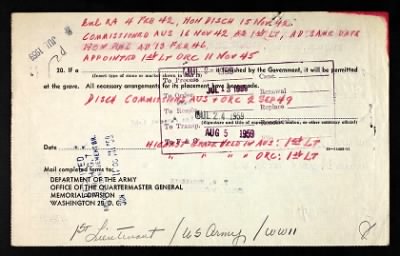 ENL RA 4 FEB 42, HON DISCH 15 NOV 42
COMMISSIONED AUS 16 NOV 42 AS 1ST LT, AD SAME DATE
HON REL AD 13 FEB 46.
APPOINTED 1ST LT ORC 11 NOV 45
JUN 1959
20. If a
furnished by the Government, it will be permitted
at the grave. All necessary arrangements for its placement have been made.
To Process
Cons.
To Order
JUL 13 1959
Renewal
Replace
DISCH COMMISSION, AUS & ORC 2 SEP 49
JUL 24 1959
To Transp
AUG 5 1959
Date
HIGHEST GRADE HELD IN AUS: 1ST LT
" " " " ORC: 1ST LT
Mail completed forms to:
DEPARTMENT OF THE ARMY
OFFICE OF THE QUARTERMASTER GENERAL
MEMORIAL DIVISION
WASHINGTON 25, D. C.
1st Lieutenant / US Army / WWII